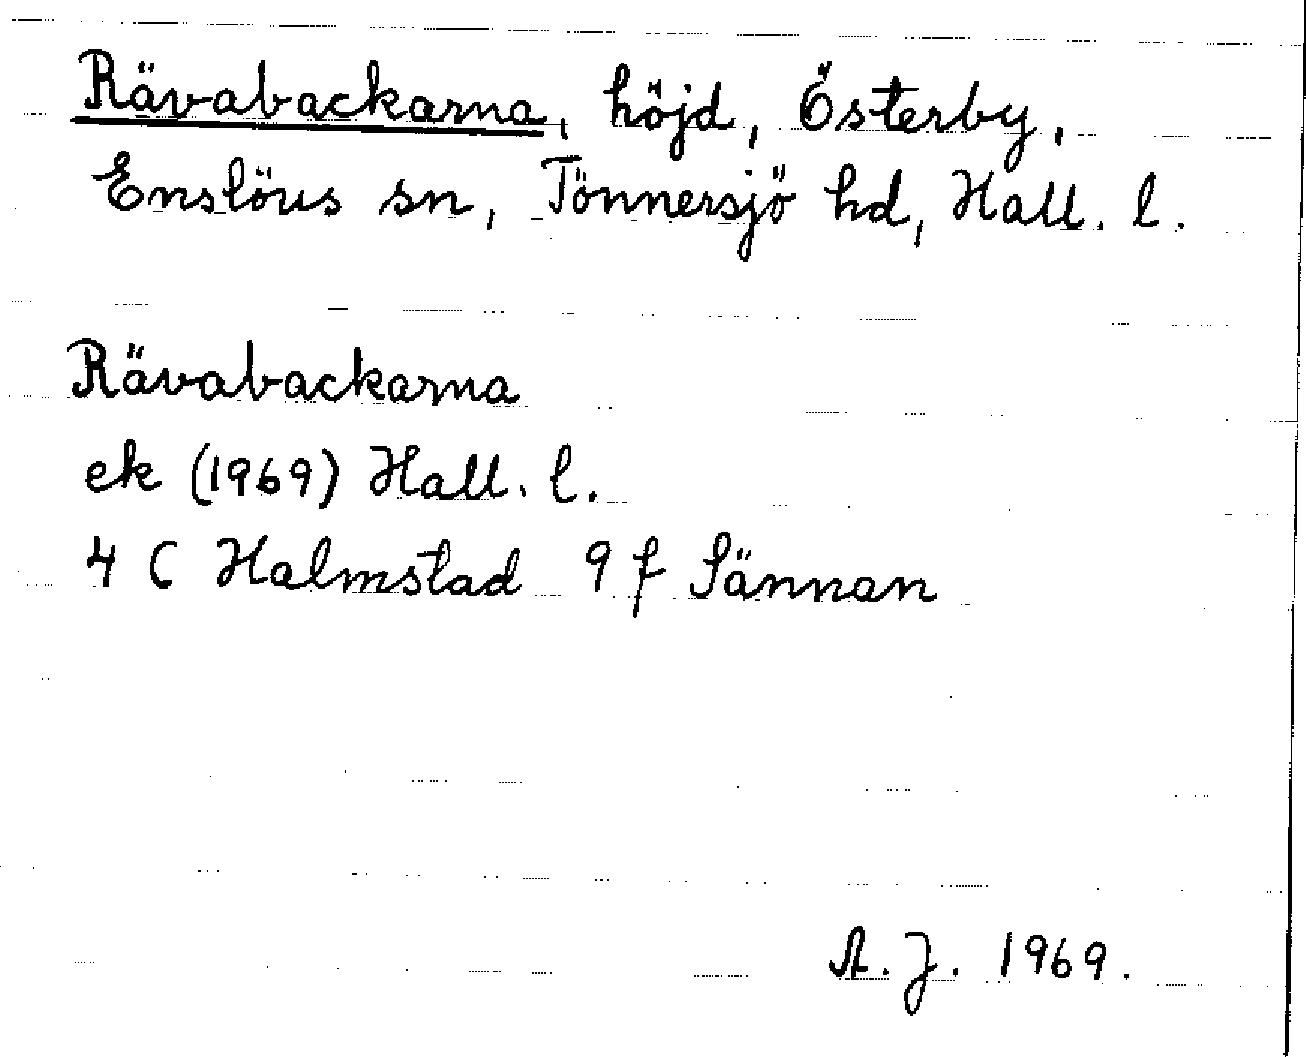 Rävabackarna, höjd, Österby,
Enslövs sn, Tönnersjö hd, Hall. l.
Rävabackarna
ek (1969) Hall. l.
4 C Halmstad 9 f Sännan
A. J. 1969.